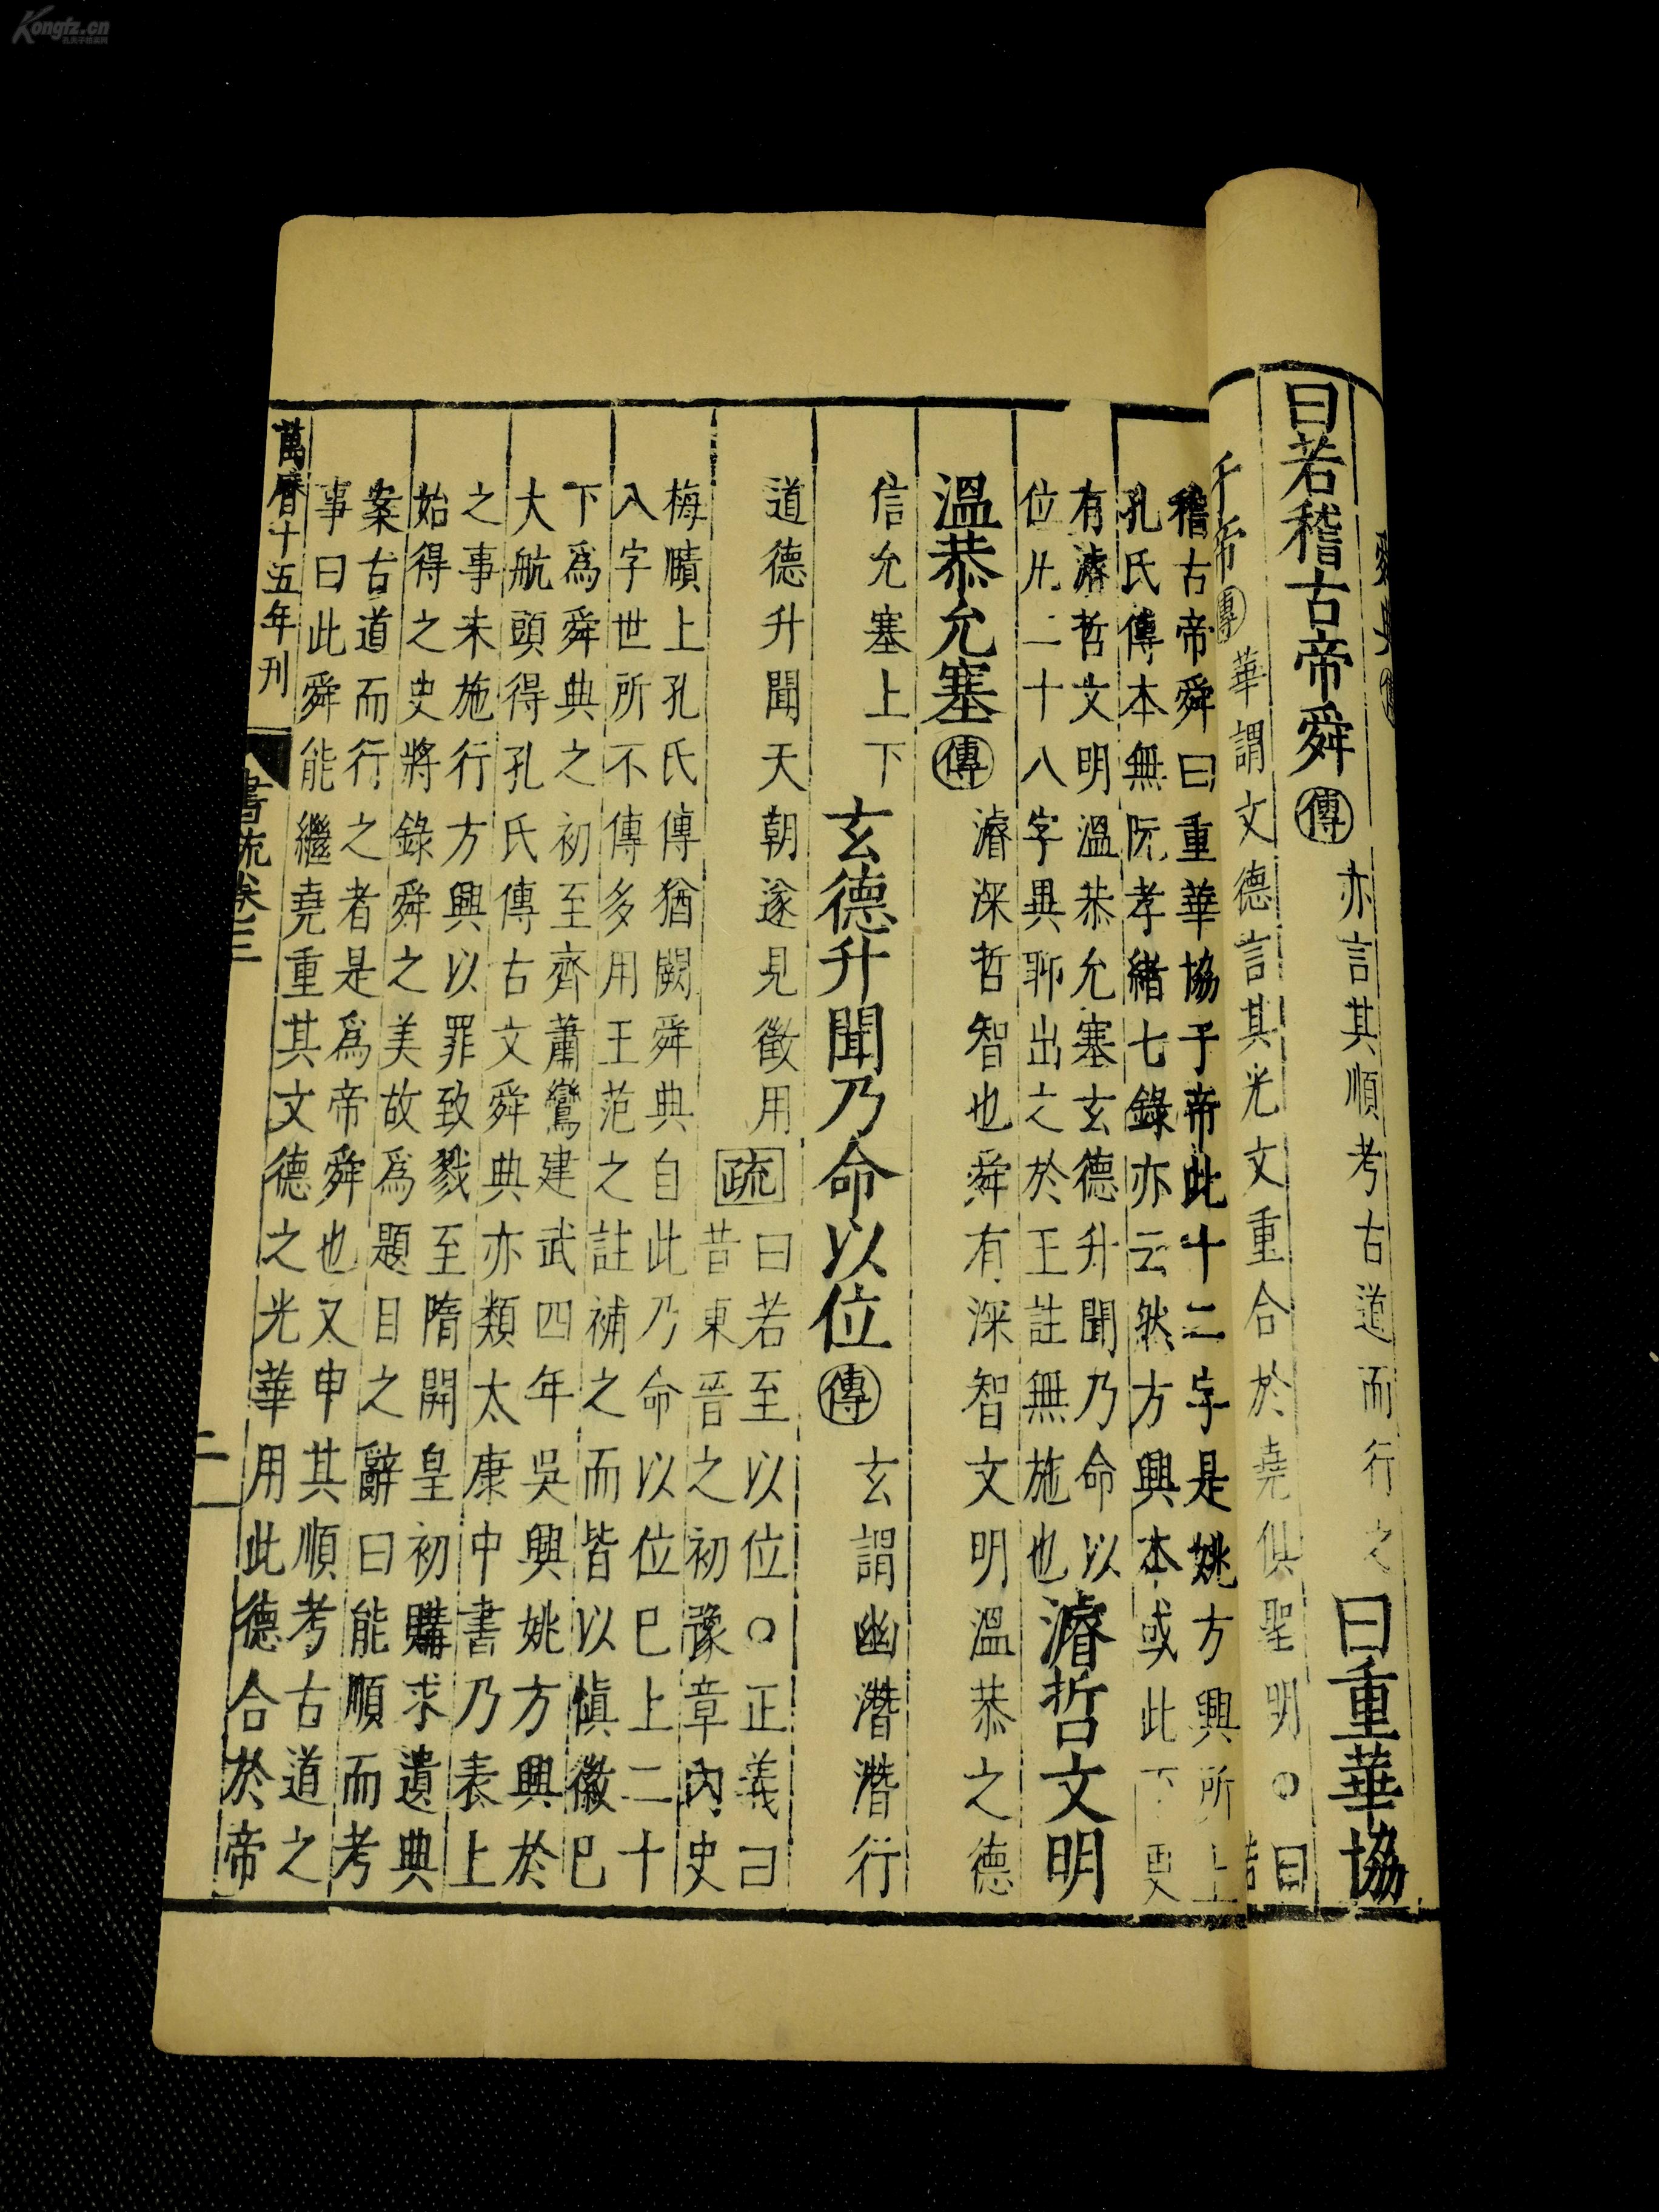 Kongfz.cn
孔夫子旧书网
曰若稽古帝舜傳亦言其順考古道而行之曰重華協
于帝傳華謂文德言其光文重合於堯俱聖明○曰
若
稽古帝舜曰重華協于帝此十二字是姚方興所上
孔氏傳本無阮孝緒七錄亦云然方興本或此下更
有濬哲文明溫恭允塞玄德升聞乃命以
位凡二十八字異聊出之於王註無施也
濬哲文明
溫恭允塞傳濬深哲智也舜有深智文明溫恭之德
信允塞上下玄德升聞乃命以位傳玄謂幽潛潛行
道德升聞天朝遂見徵用疏曰若至以位○正義曰
昔東晉之初豫章內史
梅賾上孔氏傳猶闕舜典自此乃命以位已上二十
八字世所不傳多用王范之註補之而皆以慎徽已
下為舜典之初至齊蕭鸞建武四年吳興姚方興於
大航頭得孔氏傳古文舜典亦類太康中書乃表上
之事未施行方興以罪致戮至隋開皇初購求遺典
始得之史將錄舜之美故為題目之辭曰能順而考
案古道而行之者是為帝舜也又申其順考古道之
事曰此舜能繼堯重其文德之光華用此德合於帝
萬曆十五年刊 書疏卷三 二